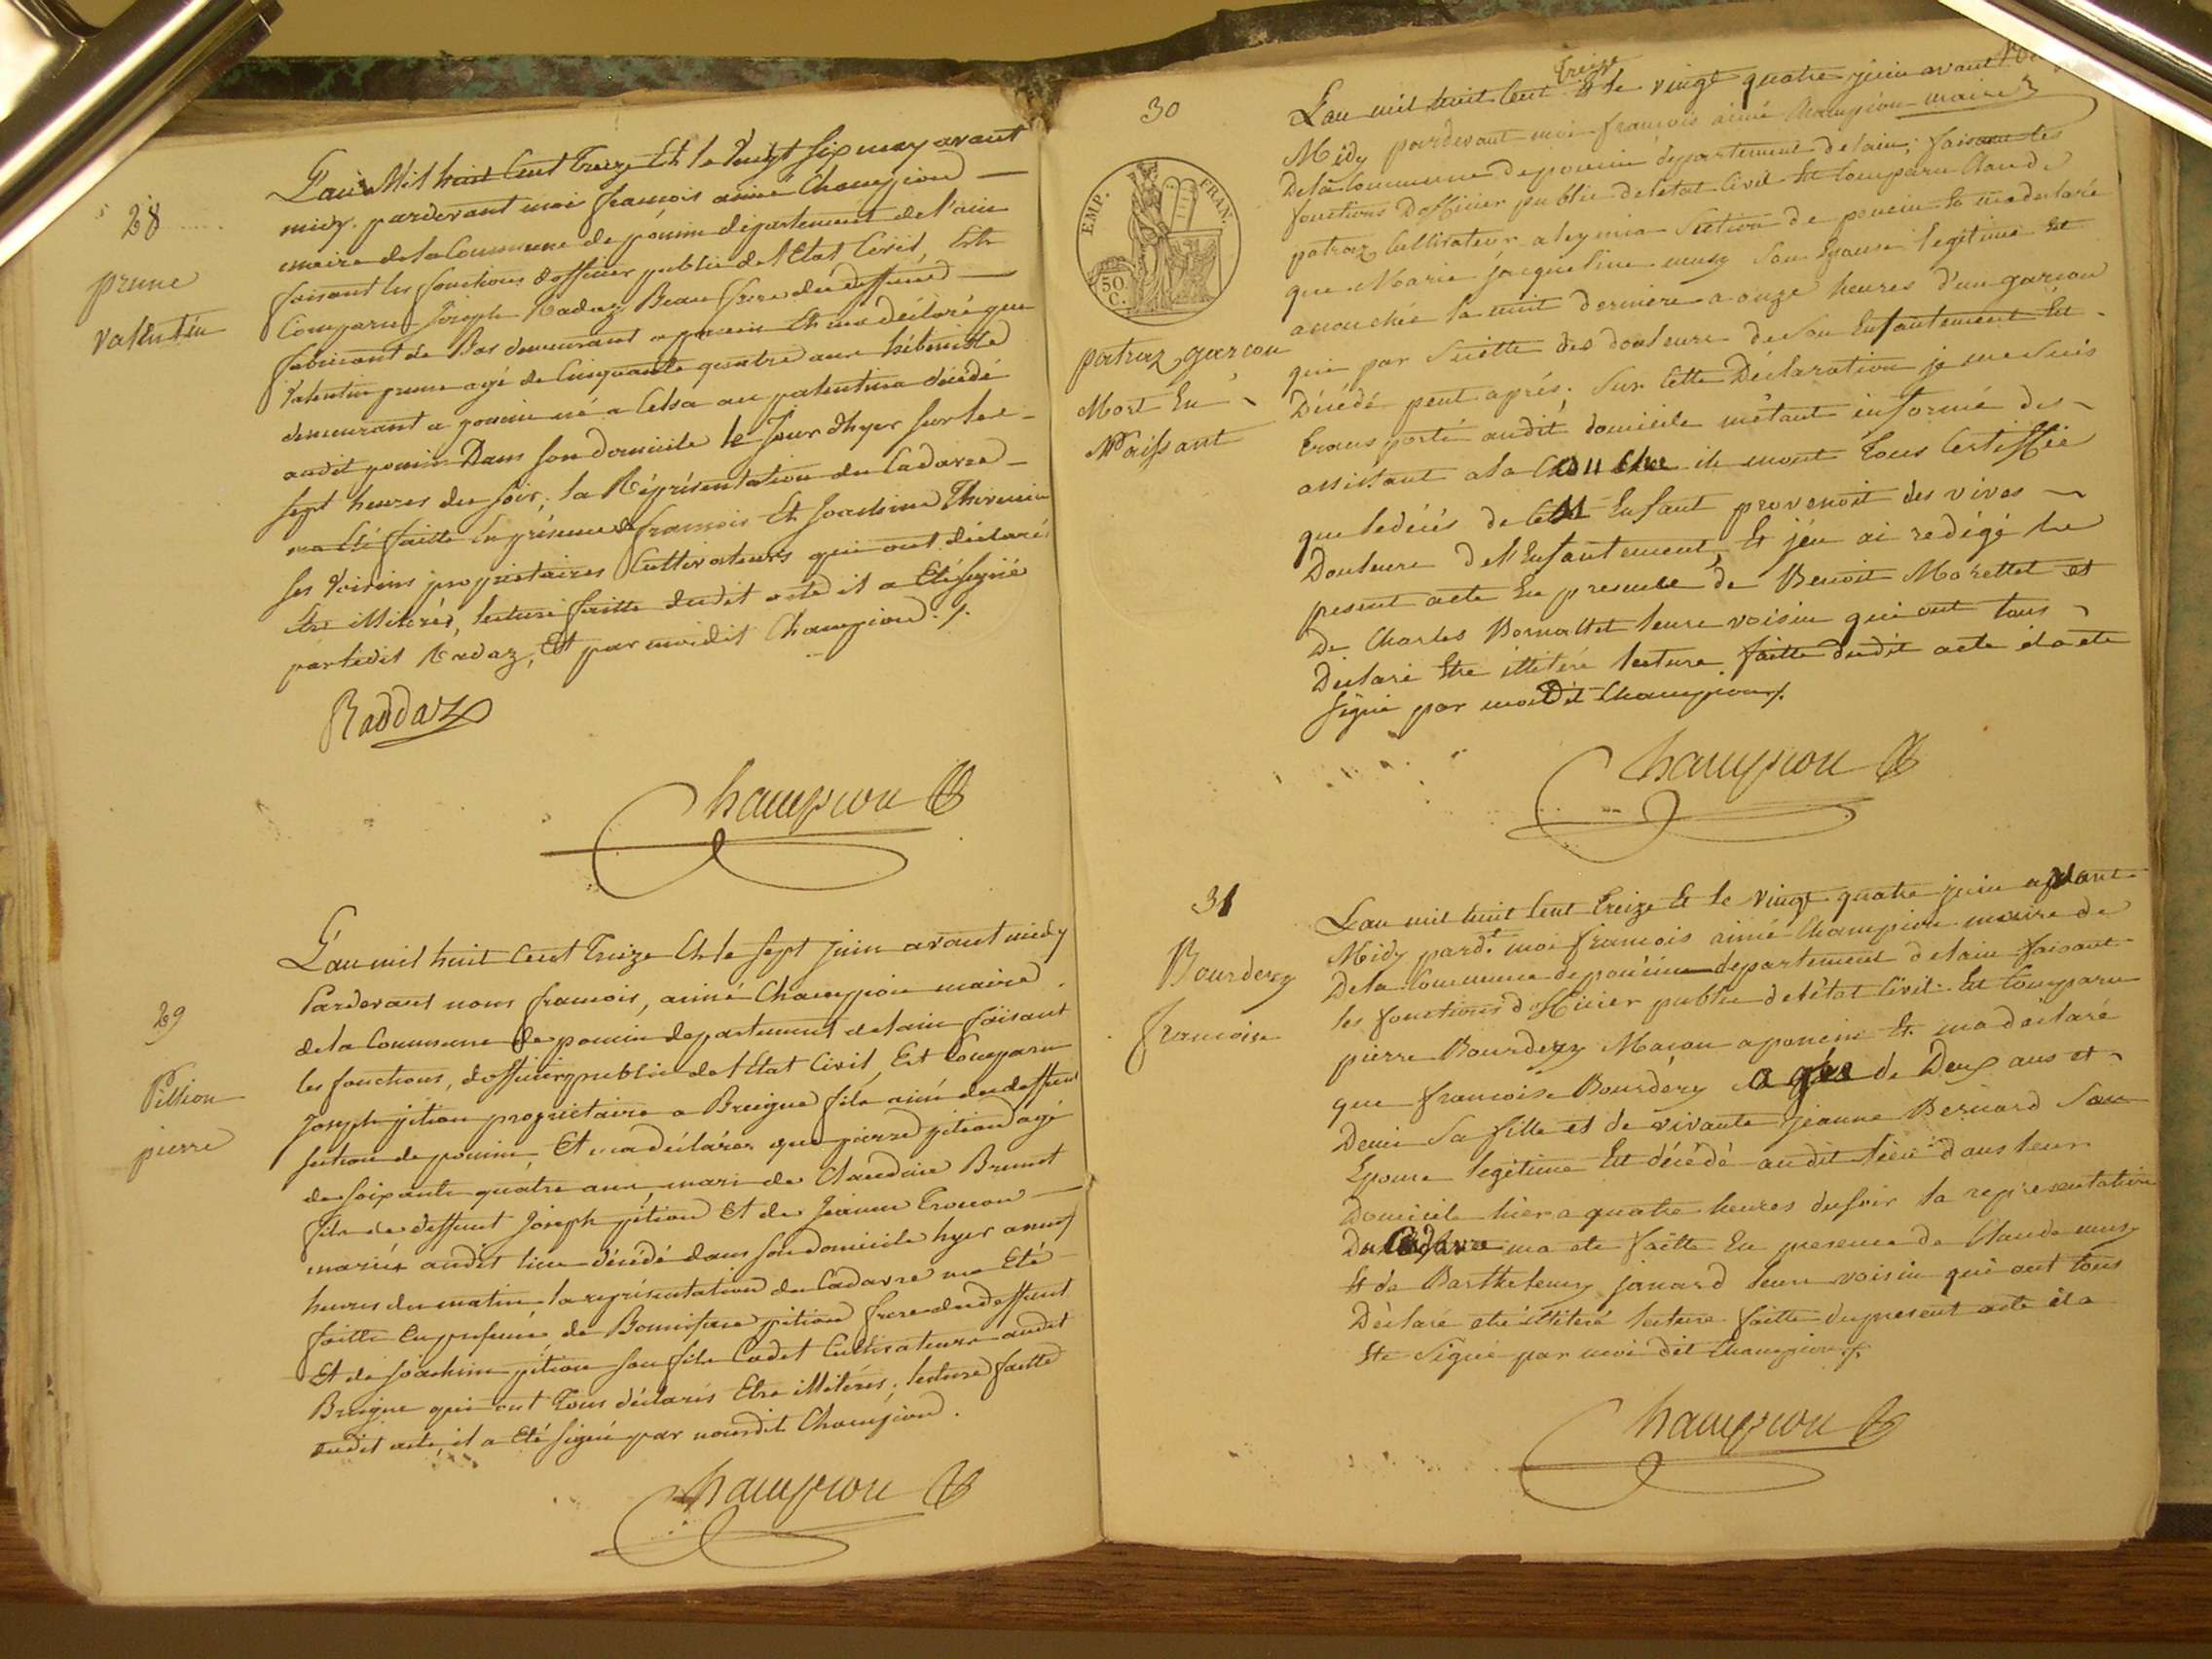 28
prune
valentin
L'an Mil huit Cent Treize Et le Vingt six may avant
midy. pardevant moi françois aimé Champion
maire de la Commune de poncin département de l'ain
faisant les fonctions d'officier public de l'Etat Civil, Est
Comparu Joseph Radaz Beau frere du deffunt
fabricant de Bas demeurant a poncin Et m'a déclaré que
Valentin prune agé de Cinquante quatre ans
demeurant a poncin né a Celsa au palentina décédé
audit poncin Dans son domicile le Jour d'hyer sur les
sept heures du soir; la Réprésentation du Cadavre
m'a été faitte En présence de françois Et Joachim Thevenin
ses Voisins proprietaires Cultivateurs qui ont déclaré
être illiterés, lecture faitte dudit acte il a Eté signé
par ledit Radaz, Et par moi dit Champion ./.
Raddaz
Champion
29
Pittion
pierre
L'an mil huit Cent Treize Et le sept juin avant midy
Pardevant nous françois, aimé Champion maire
de la Commune de poncin departement de lain faisant
les fonctions, d'officier public de l'Etat Civil, Est Comparu
Joseph pition proprietaire a Breigne fils ainé du deffunt
section de poncin, Et m'a déclaré que pierre pition agé
de soixante quatre ans, mari de Claudine Brunet
fils de deffunt Joseph pition Et de Jeanne
mariés audit lieu décédé dans son domicile hyer a neuf
heures du matin, la représentation du Cadavre m'a Eté
faitte En présence de Boniface pition frere du deffunt
Et de Joachim pition son fils Cadet Cultivateurs audit
Breigne qui ont Tous déclarés Etre illiterés; lecture faitte
dudit acte, il a Eté signé par nousdit Champion.
Champion
30
EMP. FRAN.
50 C.
patraz garcon
Mort En
Naissant
treize
L'an mil huit Cent Et le vingt quatre juin avant
Midy pardevant moi françois aimé Champion maire
De la Commune de poncin département de lain; faisant les
fonctions D'officier public de l'etat Civil Est Comparu Claude
patraz Cultivateur a leymia Section de poncin Et ma declaré
que Marie jacqueline musy Son Epouse legitime Est
accouchée la nuit derniere a onze heures d'un garcon
qui par Suitte des douleurs de son Enfantement Est
Décédé peut aprés; Sur Cette Déclaration je me suis
transporté audit domicile m'étant informé des
assistant a la Couche ils mont Tous Certiffié
que le décés de Cet Enfant provenoit des vives
Douleurs de l'Enfantement, Et j'en ai redigé le
present acte En presence de Benoit Morettet et
De Charles Bornattet leurs voisin qui ont tous
Declaré Etre illitéré lecture faitte dudit acte il a été
signé par moi Dit Champion ./.
Champion
31
Bourdezy
francoise
L'an mil huit Cent treize Et le vingt quatre juin avant
Midy pardt. moi françois aimé Champion maire de
De la Commune de poncin departement de lain faisant
les fonctions d'officier public de l'état Civil. Est Comparu
pierre Bourdezy Macon a poncin Et ma déclaré
que francoise Bourdezy agée de Deux ans et
Demi Sa fille et de vivante jeanne Bernard Son
Epouse legitime Est décédé audit lieu dans leur
Domicile hier a quatre heures du soir la representation
Du Cadavre ma ete faitte En presence de Claude musy
Et de Barthelemy janard leurs voisin qui ont tous
Déclaré etre illiteré lecture faitte du present acte il a
Ete Signé par moi dit Champion ./.
Champion